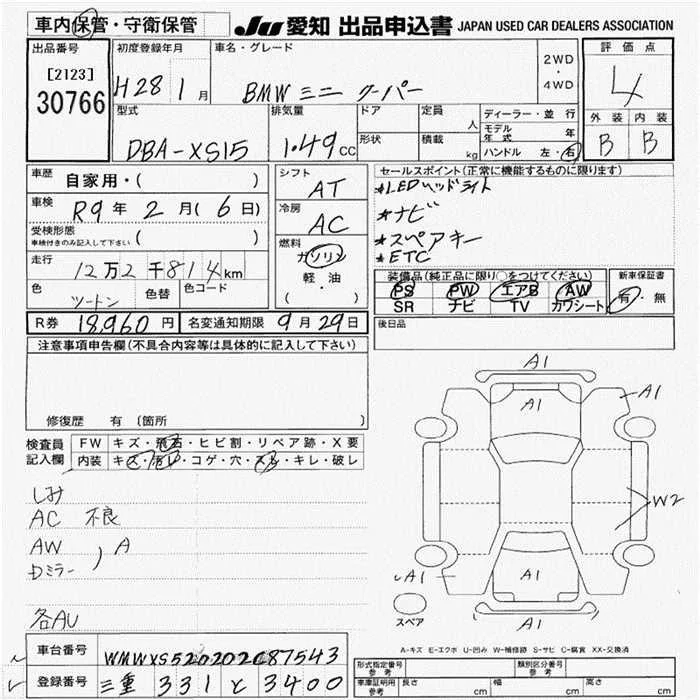 車内保管・守衛保管
JU 愛知 出品申込書 JAPAN USED CAR DEALERS ASSOCIATION
出品番号
[2123]
30766
初度登録年月
H28 1月
車名・グレード
BMW ミニ クーパー
2WD
・
4WD
評価点
4
外装 内装
B B
型式
DBA-XS15
排気量
1.49 cc
ドア
形状
定員 人
積載 kg
ディーラー・並行
モデル年式 年
ハンドル 左・右
車歴 自家用・( )
車検 R9年 2月(6日)
受検形態
車検付きのみ記入して下さい ( )
走行 12万2千814km
色 ツートン 色替 色コード
シフト AT
冷房 AC
燃料
ガソリン
軽・油
( )
セールスポイント(正常に機能するものに限ります)
*LEDヘッドライト
*ナビ
*スペアキー
*ETC
装備品(純正品に限り○をつけてください) 新車保証書
PS PW エアB AW 有・無
SR ナビ TV カワシート
R券 18,960円 名変通知期限 9月29日
後日品
注意事項申告欄(不具合内容等は具体的に記入して下さい)
修復歴 有 (箇所 )
検査員記入欄
FW キズ・飛石・ヒビ割・リペア跡・X要
内装 キズ・汚レ・コゲ・穴・スレ・キレ・破レ
しみ
AC 不良
AW
Dミラー ) A
各AU
A1
A1
A1
W2
A1
A1
A1
スペア
A-キズ E-エクボ U-凹み W-補修跡 S-サビ C-腐食 XX-交換済
車台番号 WMWXS520202G87543
登録番号 三重 331 と 3400
形式指定番号 参考
類別区分番号 参考
車庫証明用 参考 長さ cm 幅 cm 高さ cm